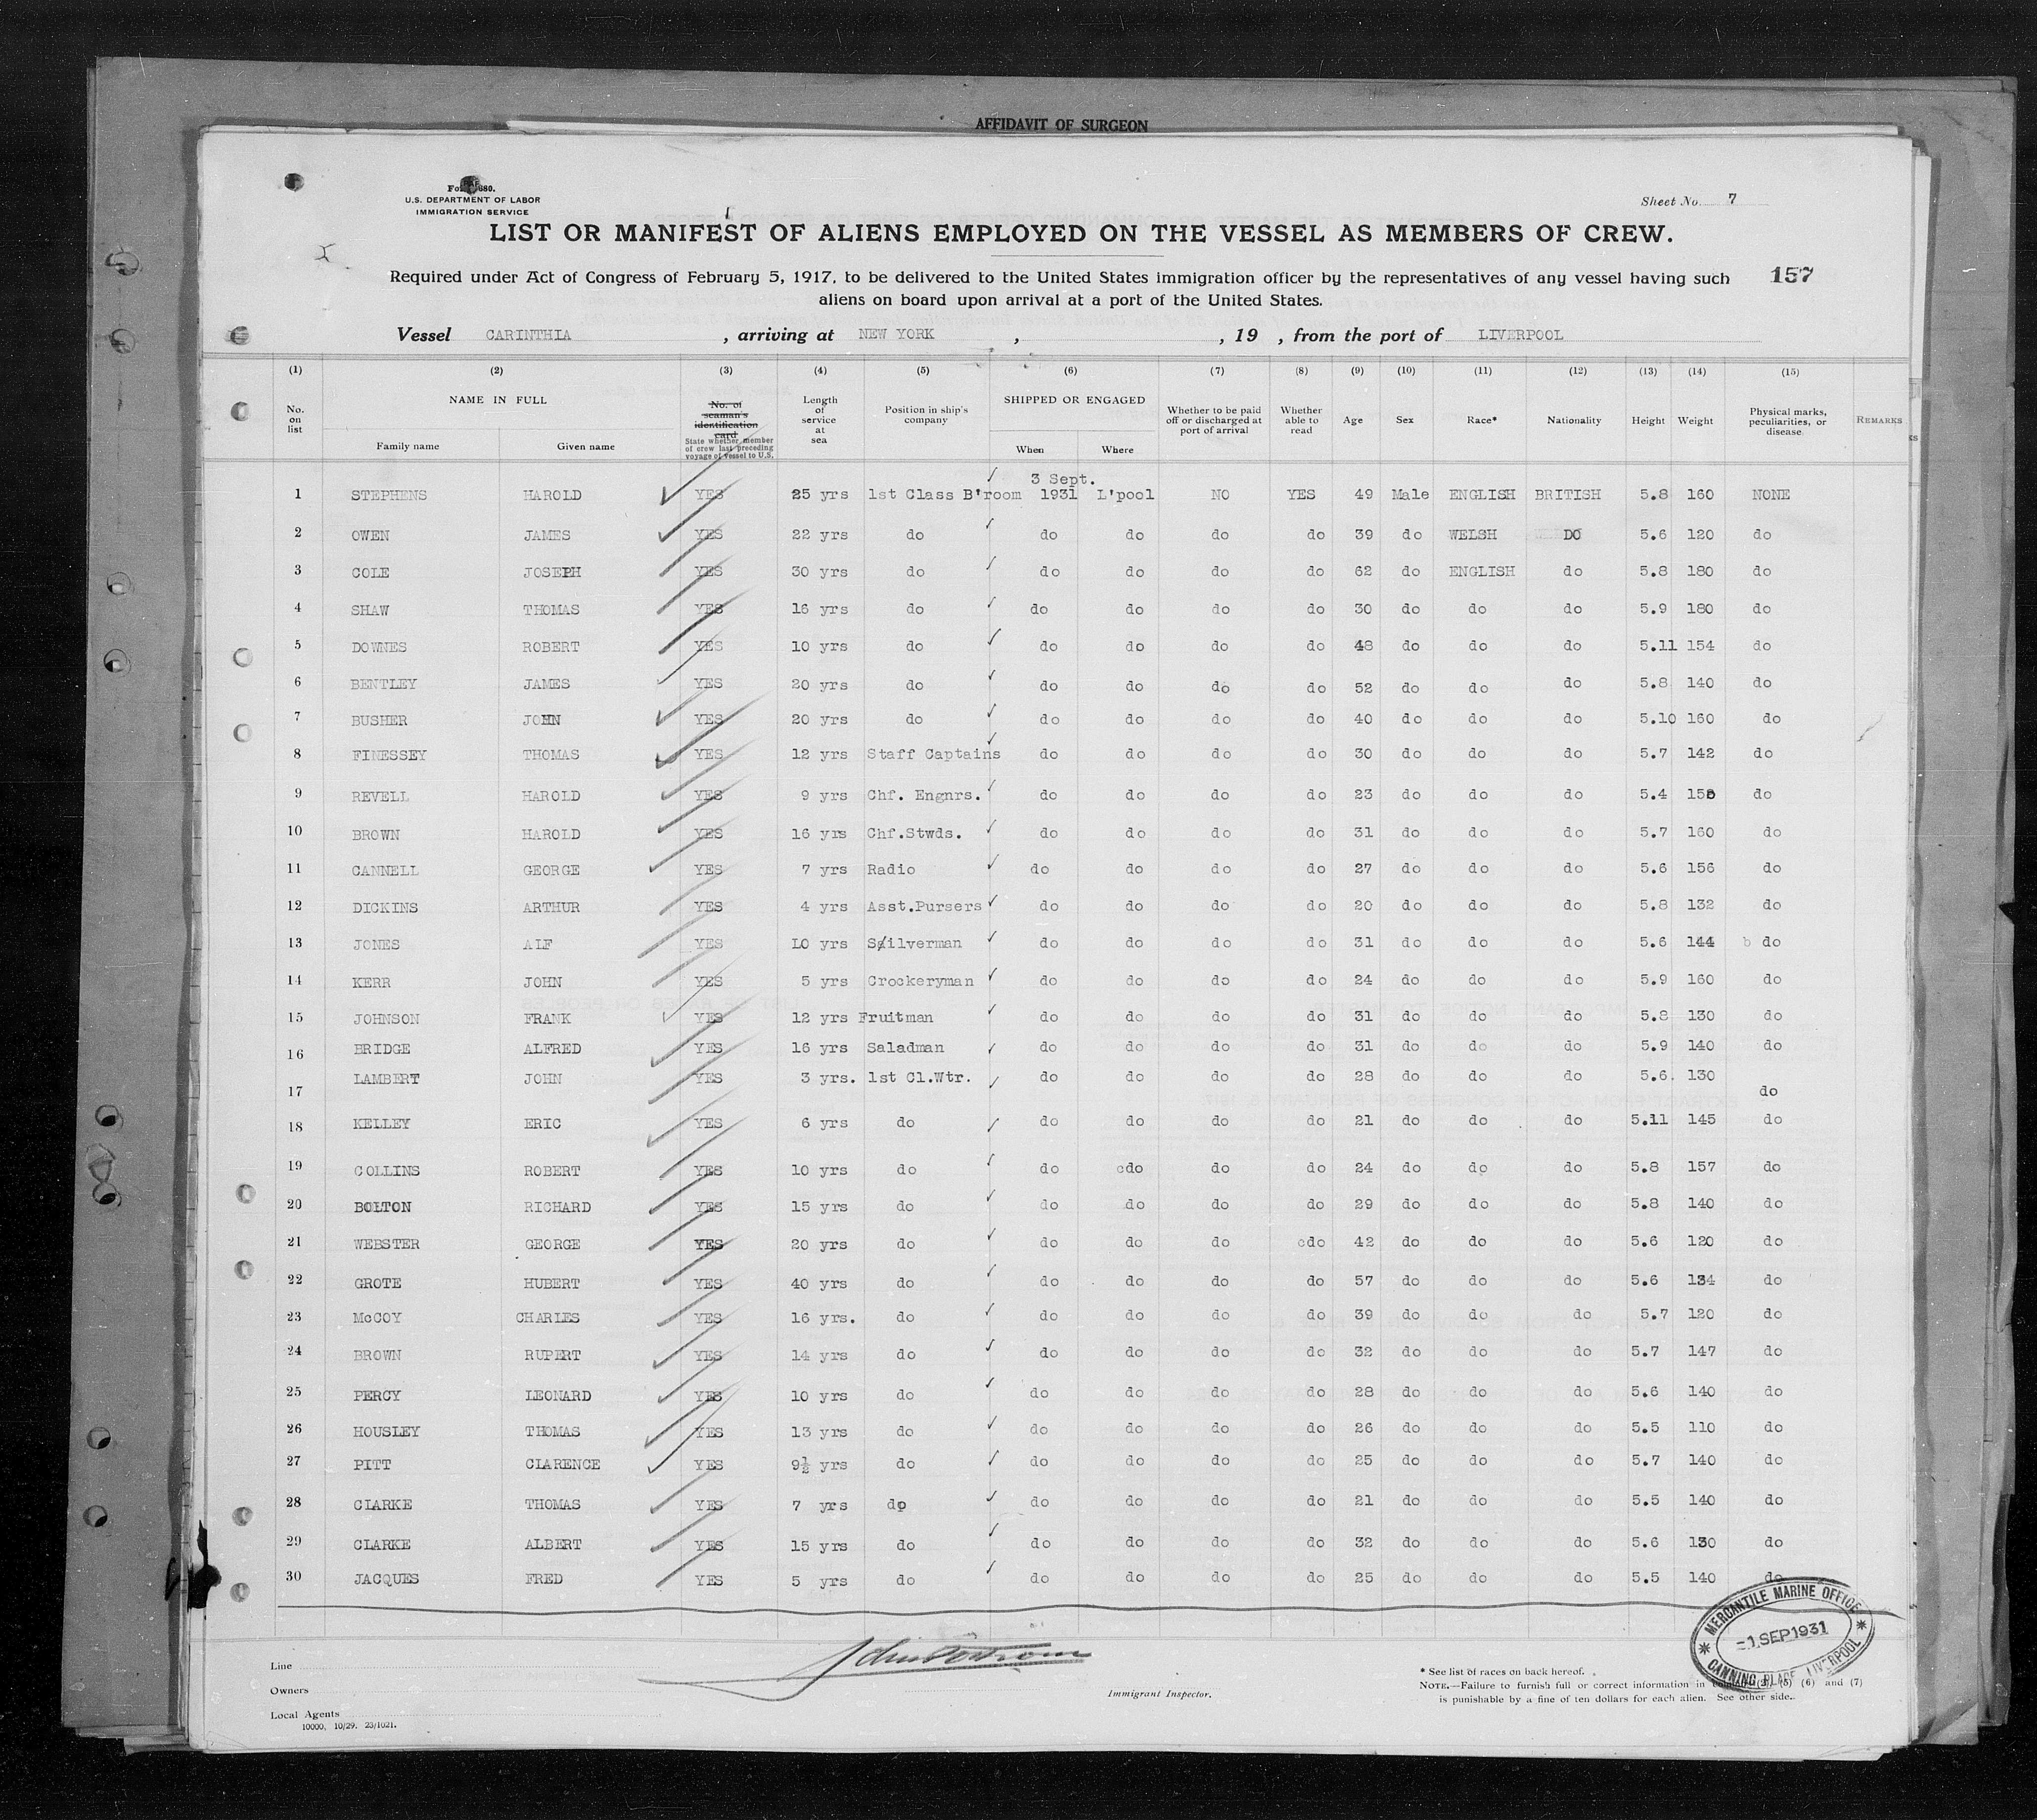 AFFIDAVIT OF SURGEON
U.S. DEPARTMENT OF LABOR
IMMIGRATION SERVICE
Sheet No. 7
LIST OR MANIFEST OF ALIENS EMPLOYED ON THE VESSEL AS MEMBERS OF CREW.
Required under Act of Congress of February 5, 1917, to be delivered to the United States immigration officer by the representatives of any vessel having such
aliens on board upon arrival at a port of the United States.
157
Vessel CARINTHIA , arriving at NEW YORK , , 19 , from the port of LIVERPOOL
(1) (2) (3) (4) (5) (6) (7) (8) (9) (10) (11) (12) (13) (14) (15)
No. on list NAME IN FULL Family name Given name No. of seaman's identification card State whether member of crew last preceding voyage of vessel to U.S. Length of service at sea Position in ship's company SHIPPED OR ENGAGED When Where Whether to be paid off or discharged at port of arrival Whether able to read Age Sex Race* Nationality Height Weight Physical marks, peculiarities, or disease. REMARKS
3 Sept.
1 STEPHENS HAROLD YES 25 yrs 1st Class B'room 1931 L'pool NO YES 49 Male ENGLISH BRITISH 5.8 160 NONE
2 OWEN JAMES YES 22 yrs do do do do do 39 do WELSH DO 5.6 120 do
3 COLE JOSEPH YES 30 yrs do do do do do 62 do ENGLISH do 5.8 180 do
4 SHAW THOMAS YES 16 yrs do do do do do 30 do do do 5.9 180 do
5 DOWNES ROBERT YES 10 yrs do do do do do 48 do do do 5.11 154 do
6 BENTLEY JAMES YES 20 yrs do do do do do 52 do do do 5.8 140 do
7 BUSHER JOHN YES 20 yrs do do do do do 40 do do do 5.10 160 do
8 FINESSEY THOMAS YES 12 yrs Staff Captains do do do do 30 do do do 5.7 142 do
9 REVELL HAROLD YES 9 yrs Chf. Engnrs. do do do do 23 do do do 5.4 do
10 BROWN HAROLD YES 16 yrs Chf.Stwds. do do do do 31 do do do 5.7 160 do
11 CANNELL GEORGE YES 7 yrs Radio do do do do 27 do do do 5.6 156 do
12 DICKINS ARTHUR YES 4 yrs Asst.Pursers do do do do 20 do do do 5.8 132 do
13 JONES ALF YES 10 yrs Silverman do do do do 31 do do do 5.6 144 do
14 KERR JOHN YES 5 yrs Crockeryman do do do do 24 do do do 5.9 160 do
15 JOHNSON FRANK YES 12 yrs Fruitman do do do do 31 do do do 5.8 130 do
16 BRIDGE ALFRED YES 16 yrs Saladman do do do do 31 do do do 5.9 140 do
17 LAMBERT JOHN YES 3 yrs. 1st Cl.Wtr. do do do do 28 do do do 5.6. 130 do
18 KELLEY ERIC YES 6 yrs do do do do do 21 do do do 5.11 145 do
19 COLLINS ROBERT YES 10 yrs do do cdo do do 24 do do do 5.8 157 do
20 BOLTON RICHARD YES 15 yrs do do do do do 29 do do do 5.8 140 do
21 WEBSTER GEORGE YES 20 yrs do do do do cdo 42 do do do 5.6 120 do
22 GROTE HUBERT YES 40 yrs do do do do do 57 do do do 5.6 134 do
23 McCOY CHARLES YES 16 yrs. do do do do do 39 do do do 5.7 120 do
24 BROWN RUPERT YES 14 yrs do do do do do 32 do do do 5.7 147 do
25 PERCY LEONARD YES 10 yrs do do do do do 28 do do do 5.6 140 do
26 HOUSLEY THOMAS YES 13 yrs do do do do do 26 do do do 5.5 110 do
27 PITT CLARENCE YES 9½ yrs do do do do do 25 do do do 5.7 140 do
28 CLARKE THOMAS YES 7 yrs do do do do do 21 do do do 5.5 140 do
29 CLARKE ALBERT YES 15 yrs do do do do do 32 do do do 5.6 130 do
30 JACQUES FRED YES 5 yrs do do do do do 25 do do do 5.5 140 do
MERCANTILE MARINE OFFICE
1 SEP 1931
CANNING PLACE, LIVERPOOL
Line
Owners
Local Agents
10000, 10/29. 23/1021.
Immigrant Inspector.
* See list of races on back hereof.
NOTE.—Failure to furnish full or correct information in (5) (6) and (7)
is punishable by a fine of ten dollars for each alien. See other side.